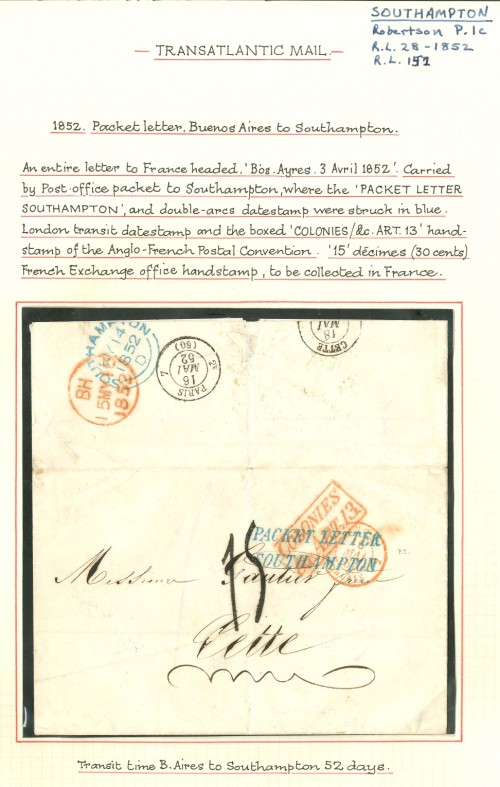 SOUTHAMPTON
Robertson P.1c
R.L. 28-1852
R.L. 157
— TRANSATLANTIC MAIL. —
1852. Packet letter, Buenos Aires to Southampton.
An entire letter to France headed, 'Bos. Ayres. 3 Avril 1852'. Carried
by Post-office packet to Southampton, where the 'PACKET LETTER
SOUTHAMPTON', and double-arcs datestamp were struck in blue.
London transit datestamp and the boxed 'COLONIES/&c. ART. 13' hand-
stamp of the Anglo-French Postal Convention. '15' décimes (30 cents)
French Exchange office handstamp, to be collected in France.
SOUTHAMPTON
MY 14
1852
D
BH
15MY
1852
PARIS
16
MAI
52
(60)
CETTE
18
MAI
COLONIES
&c. ART. 13
PACKET LETTER
SOUTHAMPTON
MAI
P.T.
15
Messieurs Gautier
Cette
Transit time B. Aires to Southampton 52 days.